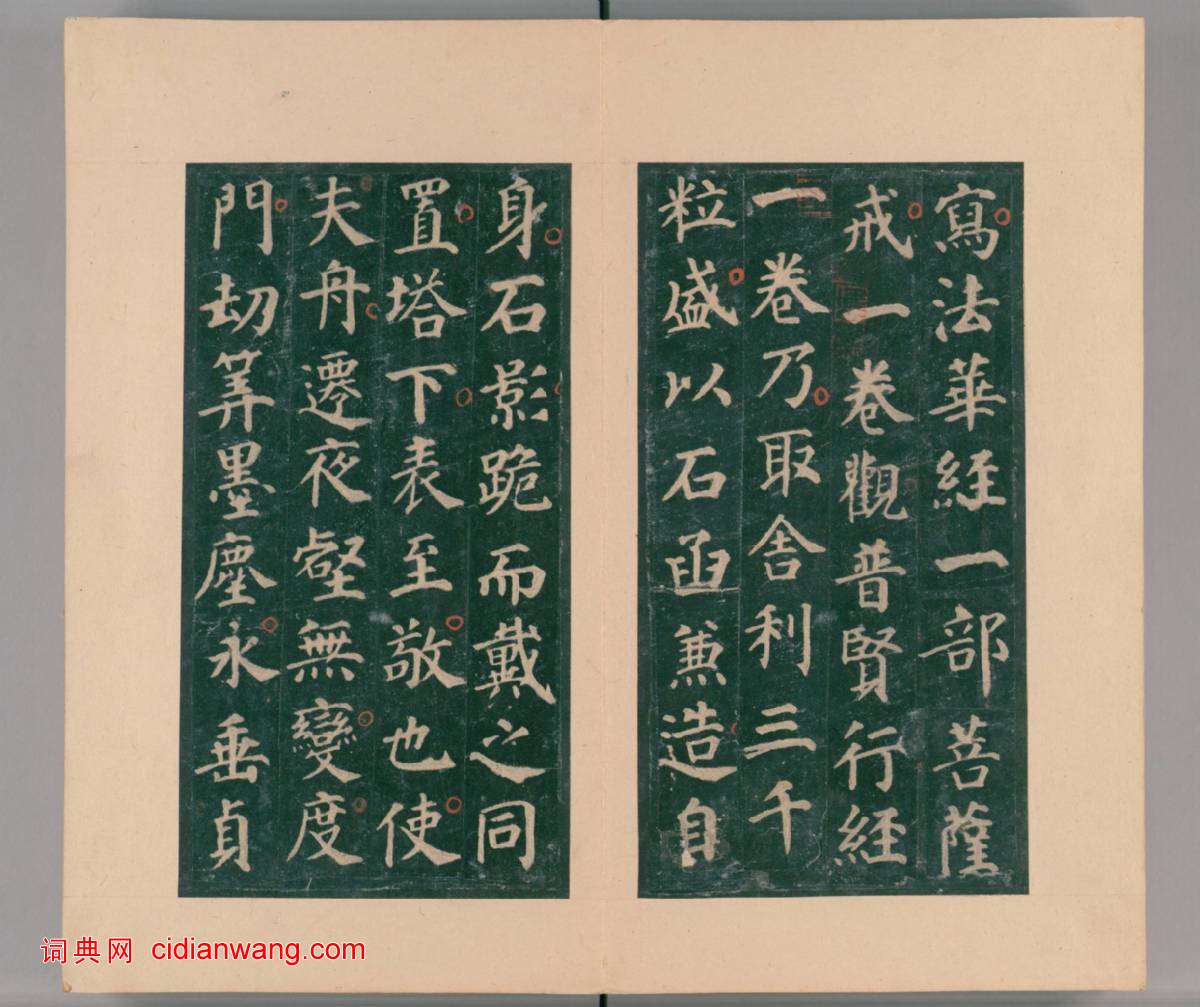 寫法華經一部菩薩
戒一卷觀普賢行經
一卷乃取舍利三千
粒盛以石函兼造自
身石影跪而戴之同
置塔下表至敬也使
夫舟遷夜壑無變度
門劫筭墨塵永垂貞
词典网 cidianwang.com